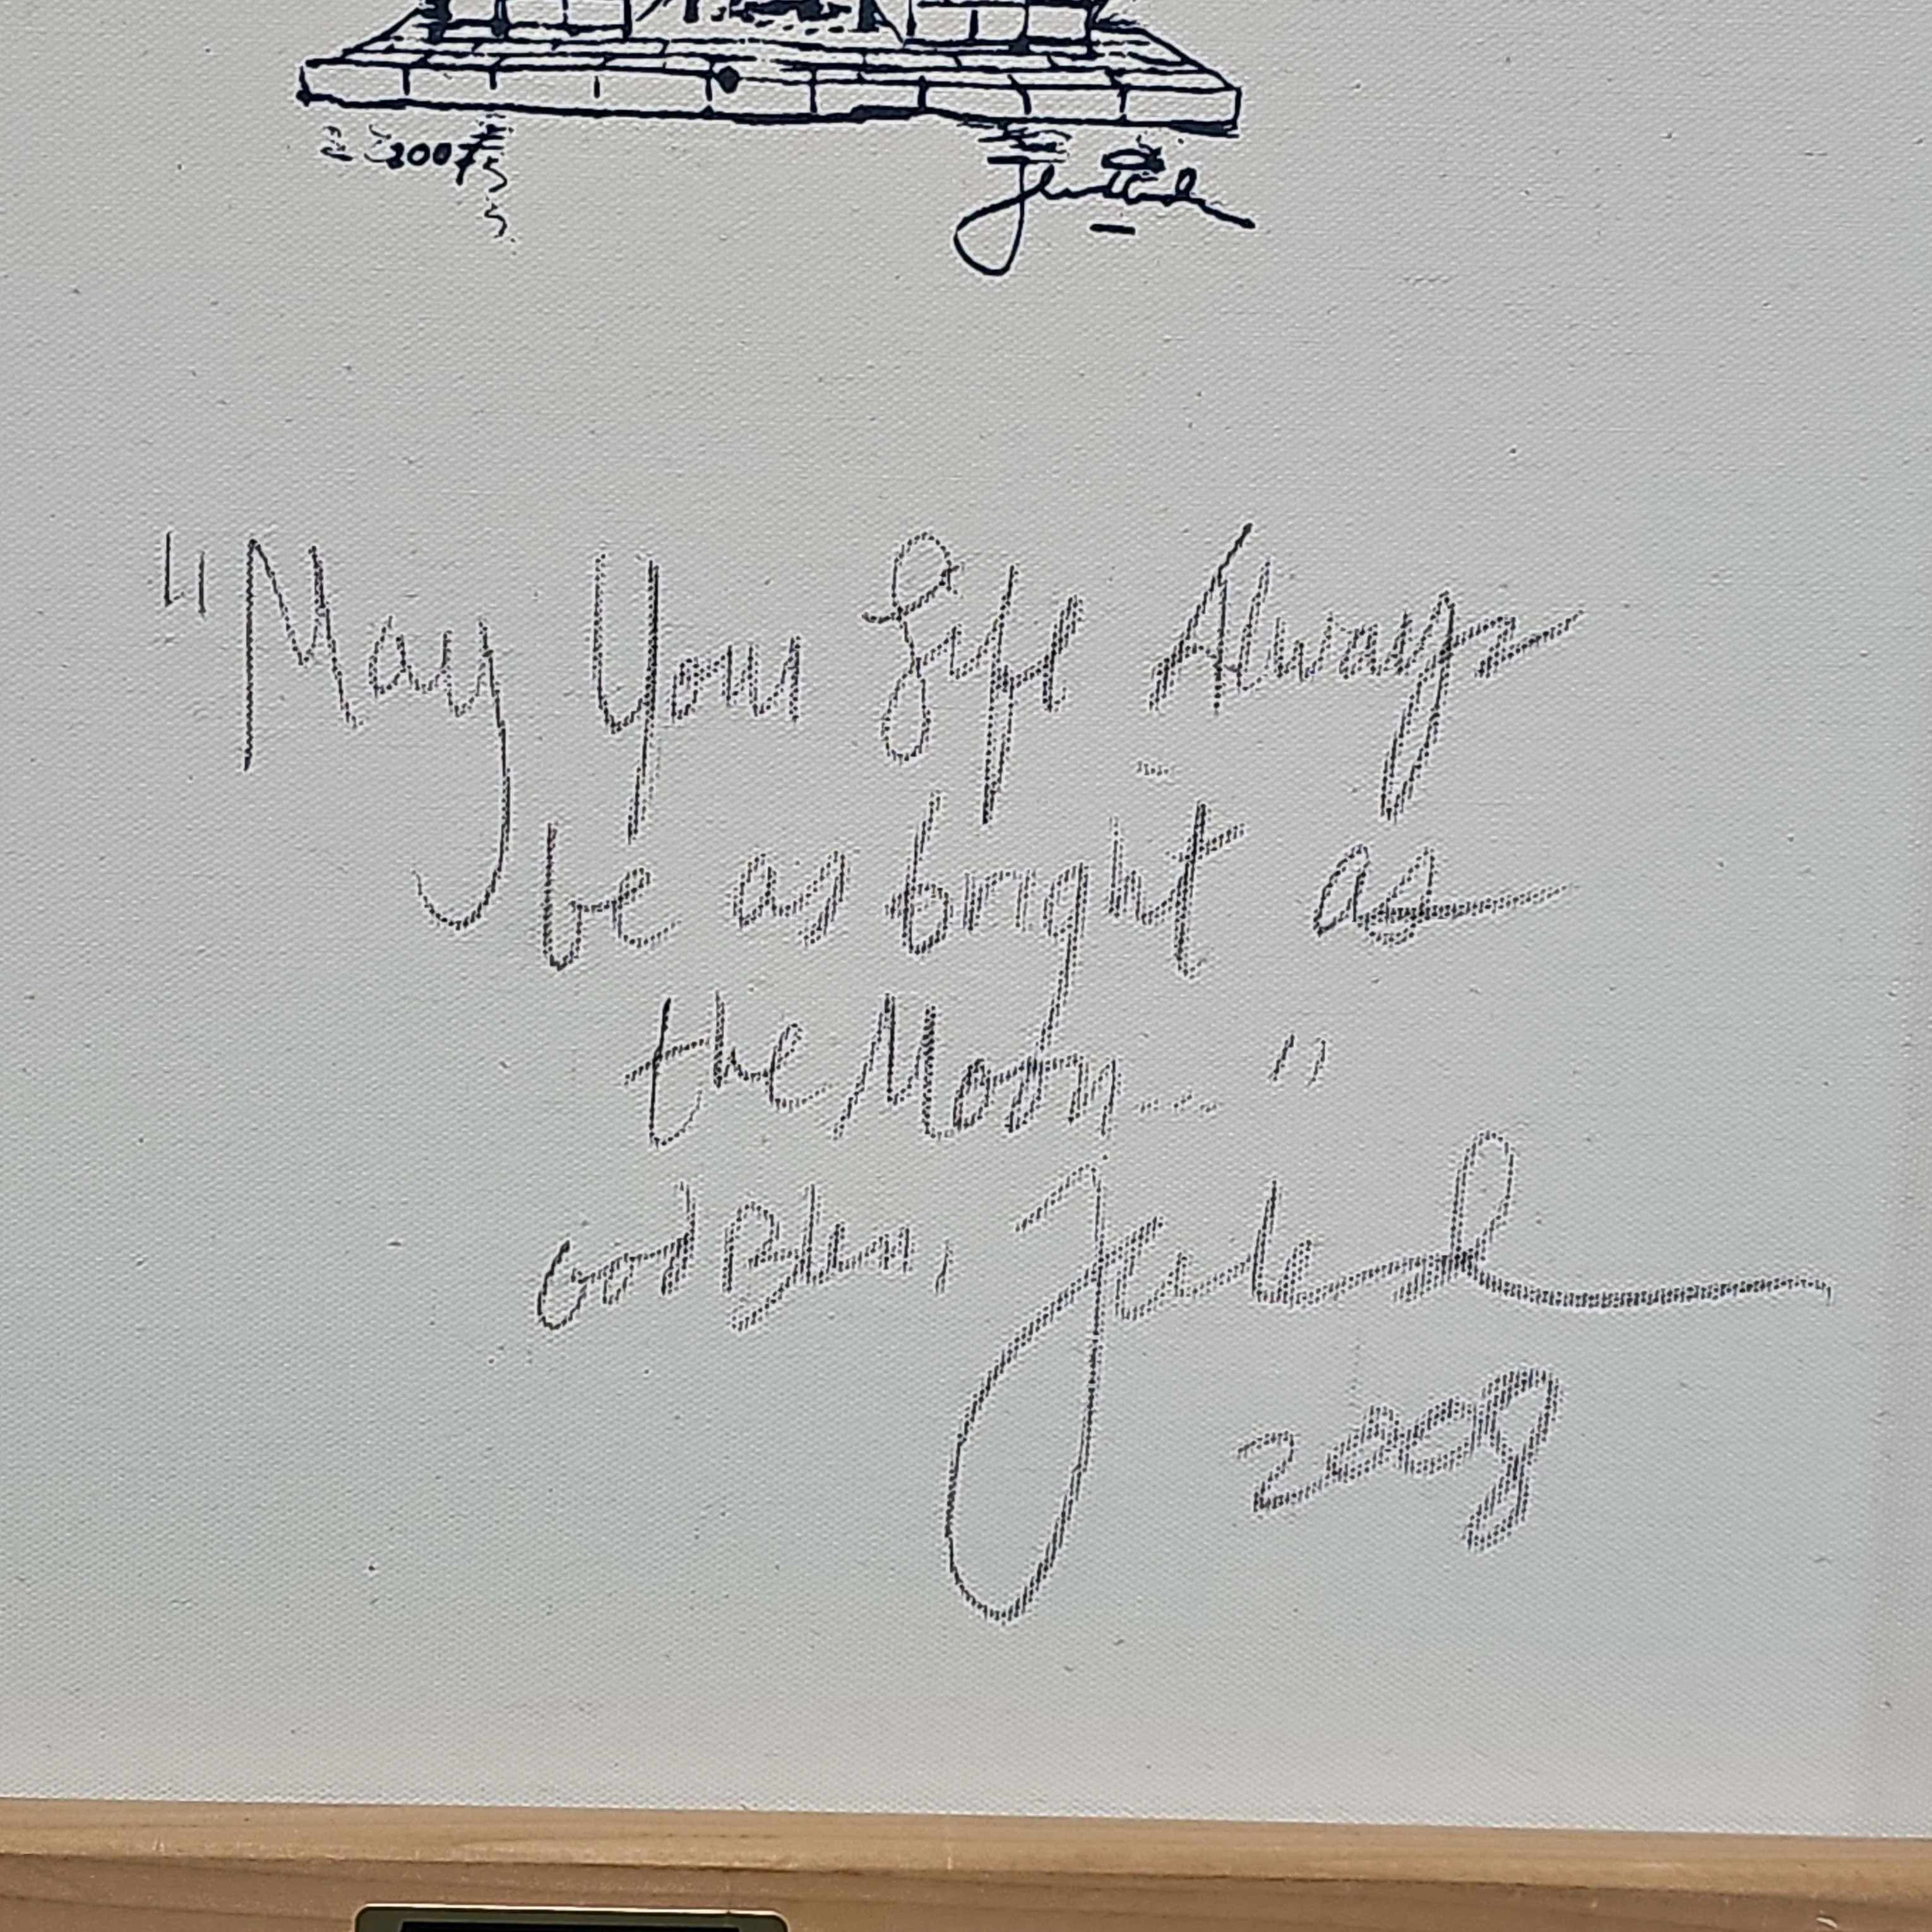 2007
"May Your Life Always
be as bright as
the Moon..."
God Bless,
2008